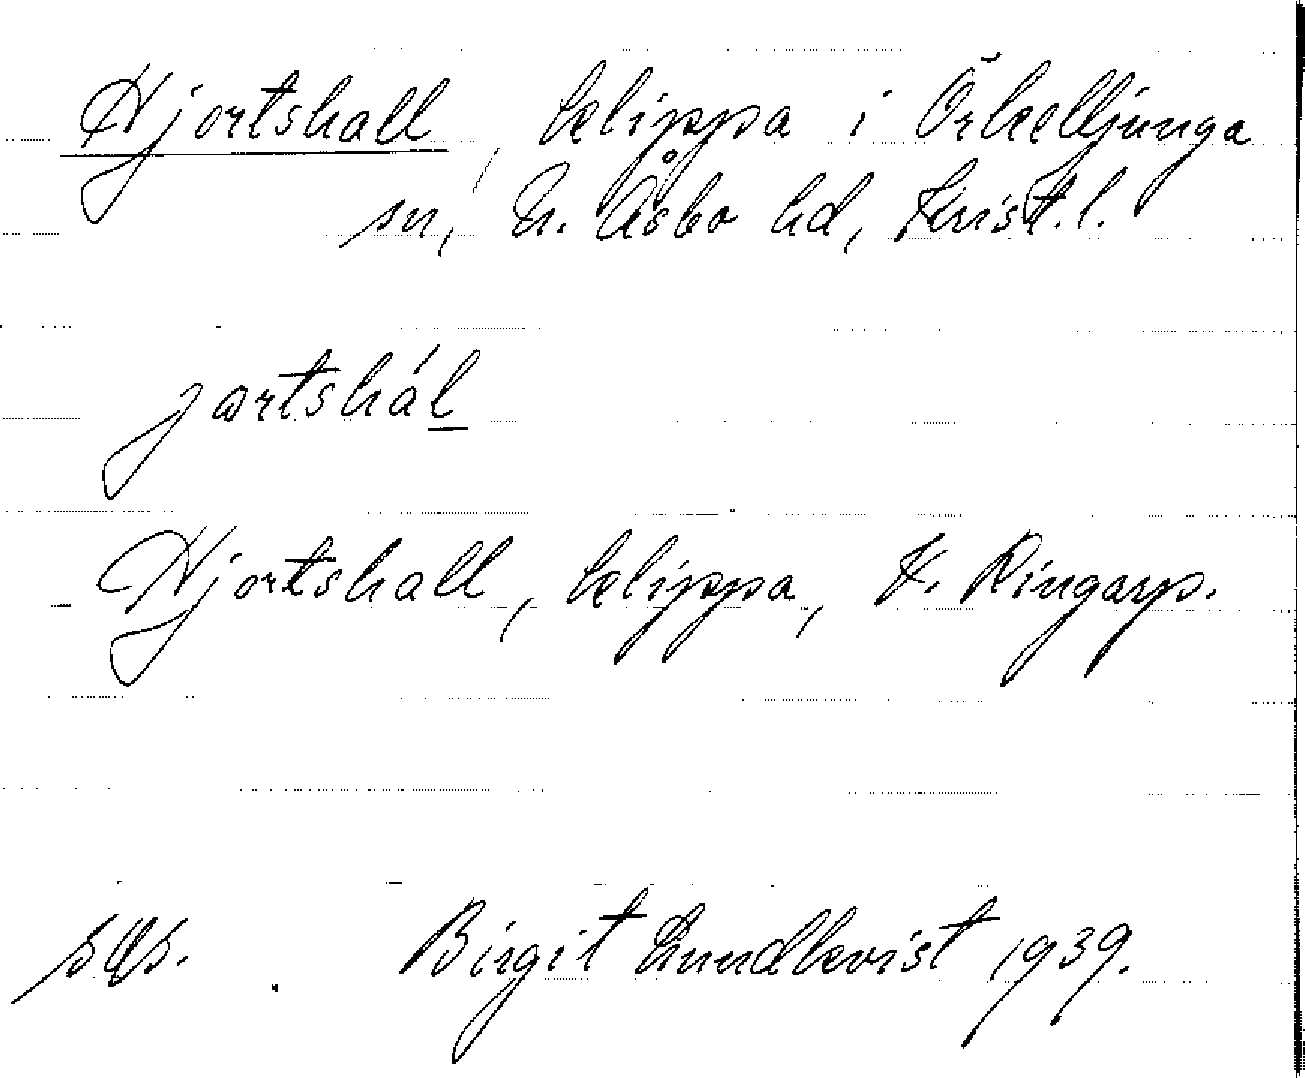 Hjortshall, klippa i Örkelljunga
sn, N. Åsbo hd, Krist. l.
jortshál
Hjortshall, klippa, K. Ringarp.
Birgit Lundkvist 1939.